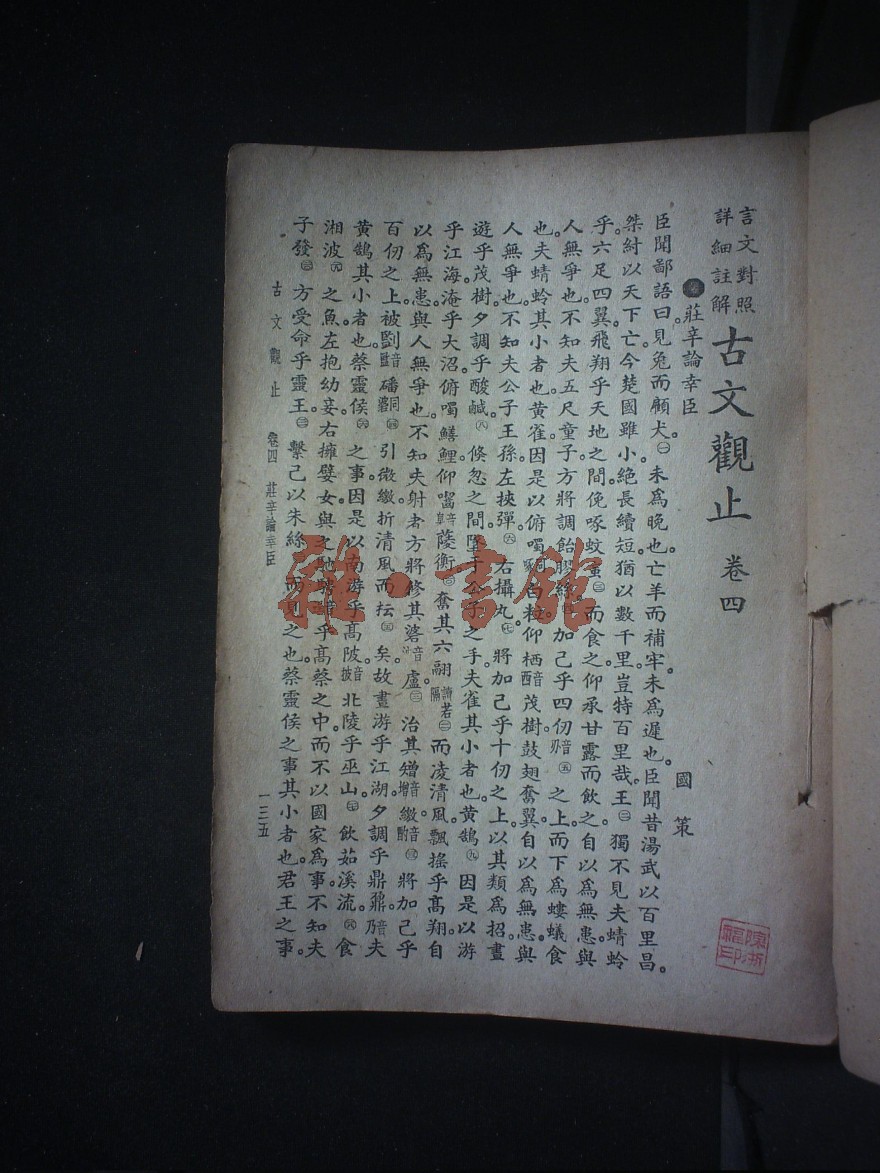 言文對照
詳細註解
古文觀止 卷四
莊辛論幸臣 國策
臣聞鄙語曰。見兔而顧犬。㊀未爲晚也。亡羊而補牢。未爲遲也。臣聞昔湯武以百里昌。
桀紂以天下亡。今楚國雖小。絕長續短。猶以數千里。豈特百里哉。王㊁獨不見夫蜻蛉
乎。六足四翼。飛翔乎天地之間。俛啄蚊蝱㊂而食之。仰承甘露而飲之。自以爲無患。與
人無爭也。不知夫五尺童子。方將調飴膠絲。加己乎四仞音刃㊄之上。而下爲螻蟻食
也。夫蜻蛉其小者也。黃雀因是以。俯噣白粒。仰栖音西茂樹。鼓翅奮翼。自以爲無患。與
人無爭也。不知夫公子王孫。左挾彈。㊅右攝丸。㊆將加己乎十仞之上。以其類爲招。晝
遊乎茂樹。夕調乎酸鹹。㊇倏忽之間。墜于公子之手。夫雀其小者也。黃鵠㊈因是以。游
乎江海。淹乎大沼。俯噣鱔鯉。仰嚙菱衡。奮其六翮。而凌清風。飄搖乎高翔。自
以爲無患。與人無爭也。不知夫射者。方將修其碆盧。治其矰音增繳音酌將加己乎
百仞之上。被音磻同引微繳。折清風而抎矣。故晝游乎江湖。夕調乎鼎鼐。音乃夫
黃鵠其小者也。蔡靈侯之事因是以。南游乎高陂。音披北陵乎巫山。飲茹溪流。食
湘波之魚。左抱幼妾。右擁嬖女。與之馳乎高蔡之中。而不以國家爲事。不知夫
子發方受命乎靈王。繫己以朱絲而見之也。蔡靈侯之事其小者也。君王之事。
古文觀止 卷四 莊辛論幸臣 一三五
雅·書館
陳浙福印